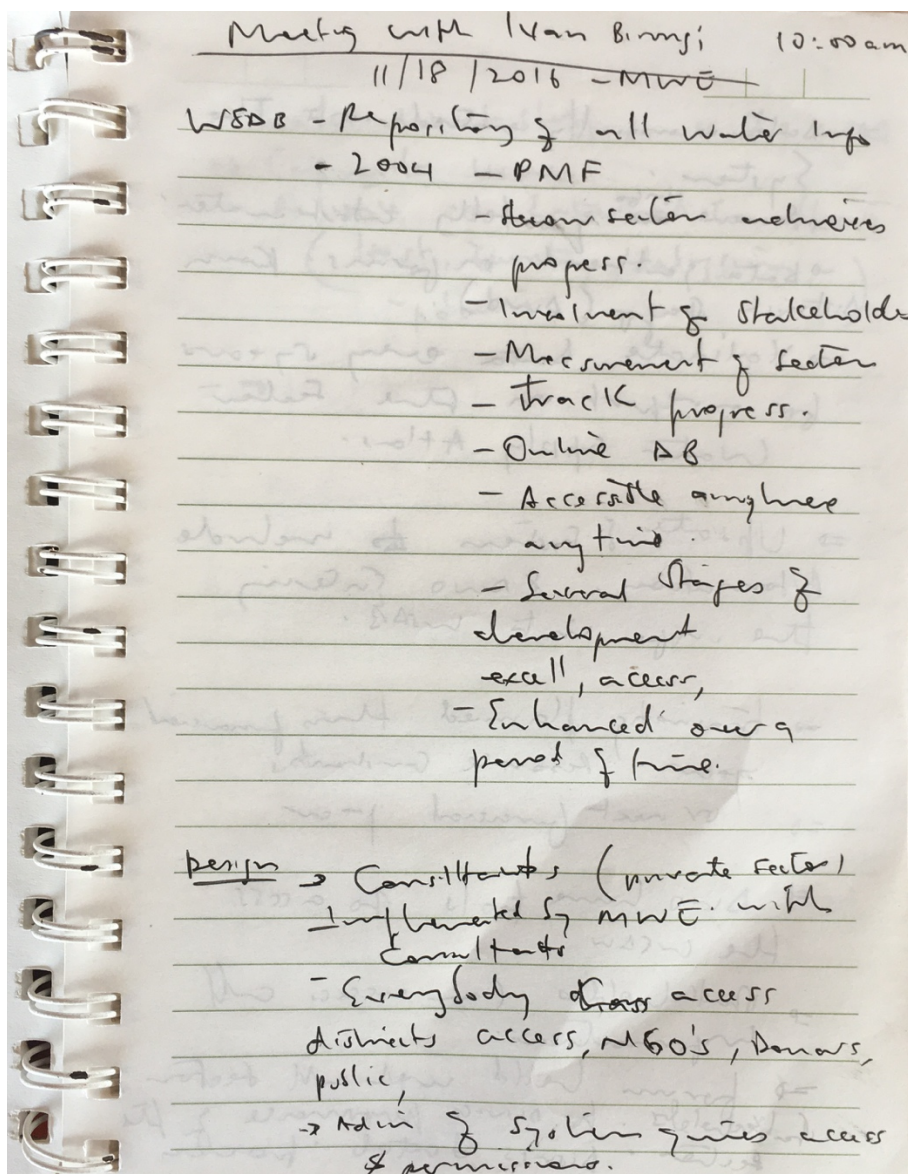 Meeting with Ivan Birungi 10:00am
11/18/2016 - MWE
WSDB - Repository of all water info
- 2004 - PMF
- sector
progress.
- Involment of stakeholders
- Measurement of sector
- Track progress.
- Online DB
- Accessible anywhere
anytime.
- Several Stages of
development
excell, access,
- Enhanced over a
period of time.
Design → Consultants (private sector)
- Implemented by MWE with
Consultants
- Everybody access
districts access, NGO's, Donors,
public,
→ Admin of system gives access
& permissions.